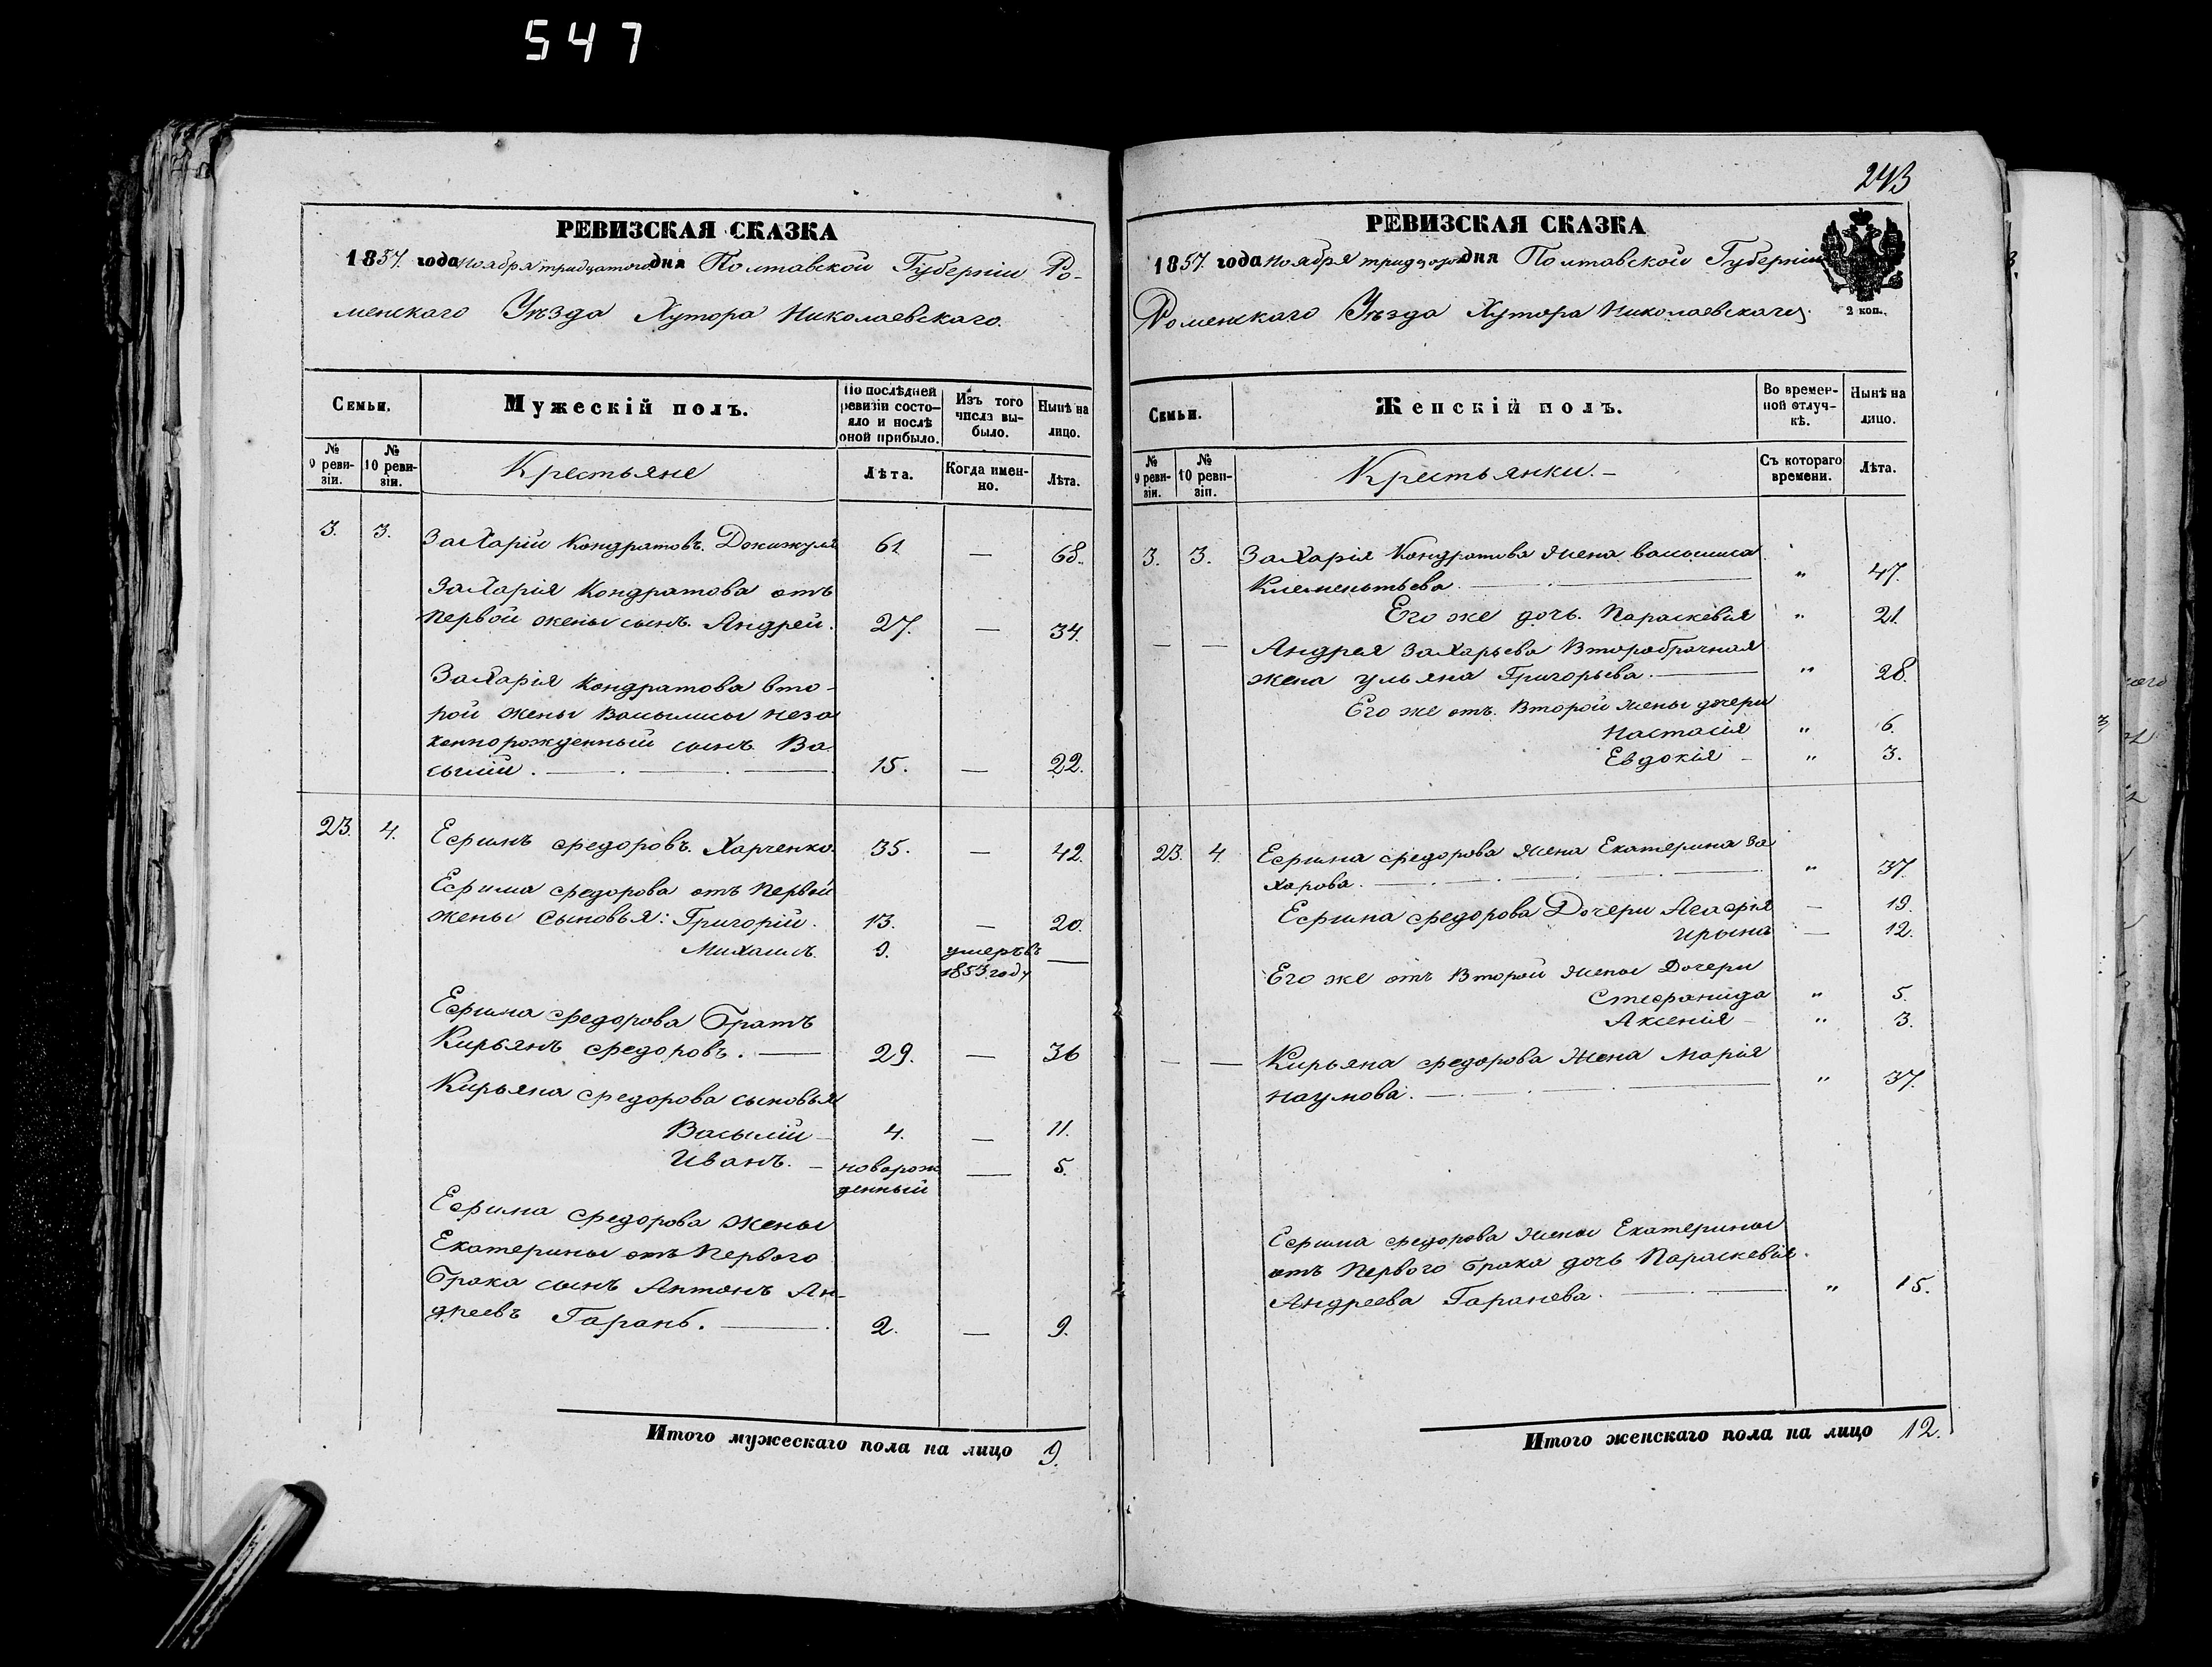 547
243
РЕВИЗСКАЯ СКАЗКА
1857. года Ноября тридцатого дня Полтавской Губерніи Ро-
менскаго Уѣзда Хутора Николаевскаго.
Семьи.
Мужескій полъ.
По послѣдней ревизіи состо-яло и послѣ оной прибыло.
Изъ того числа вы-было.
Нынѣ на лицо.
№ 9 реви-зіи.
№ 10 реви-зіи.
Крестьяне
Лѣта.
Когда имен-но.
Лѣта.
3. 3. Захарій Кондратовъ. 61 — 68.
Захарія Кондратова отъ
первой жены сынъ. Андрей. 27. — 34.
Захарія Кондратова вто-
рой жены Васылисы неза
коннорожденный сынъ Ва-
сылій. 15. — 22.
23. 4. Ефимъ Федоровъ. Харченко. 35. — 42.
Ефима Федорова отъ первой
жены сыновья: Григорій. 13. — 20.
Михаилъ. 9. умеръ въ —
1853 году
Ефима Федорова братъ
Кирьянъ Федоровъ. — 29. — 36
Кирьяна Федорова сыновья
Васылій — 4. — 11.
Иванъ. — новорож — 5.
денный
Ефима Федорова жены
Екатерины отъ первого
брака сынъ Антонъ Ан-
дреевъ Гарань. — 2. — 9.
Итого мужескаго пола на лицо 9.
РЕВИЗСКАЯ СКАЗКА
1857. года Ноября тридцатого дня Полтавской Губерніи
Роменскаго Уѣзда Хутора Николаевскаго.
2 коп.
Семьи.
Женскій полъ.
Во времен-ной отлуч-кѣ.
Нынѣ на лицо.
№ 9 реви-зіи.
№ 10 реви-зіи.
Крестьянки. —
Съ котораго времени.
Лѣта.
3. 3. Захарія Кондратова жена васылиса
Клеменьтьева. — " 47.
Его же дочь. Параскевія " 21.
— — Андрея Захарьева второбрачная
жена ульяна Григорьева. — " 28.
Его же отъ. второй жены дочери
Настасія " 6.
Евдокія — " 3.
23. 4. Ефима Федорова жена Екатерина За
харова. — " 37.
Ефима Федорова Дочери Агафія — 19.
Ирына — 12.
Его же отъ второй жены Дочери
Стефанида " 5.
Аксенія — " 3.
— — Кирьяна Федорова жена Марія
наумова. — " 37.
Ефима Федорова жены Екатерины
отъ первого брака дочь Параскевія
Андреева Гаранева. — " 15.
Итого женскаго пола на лицо 12.